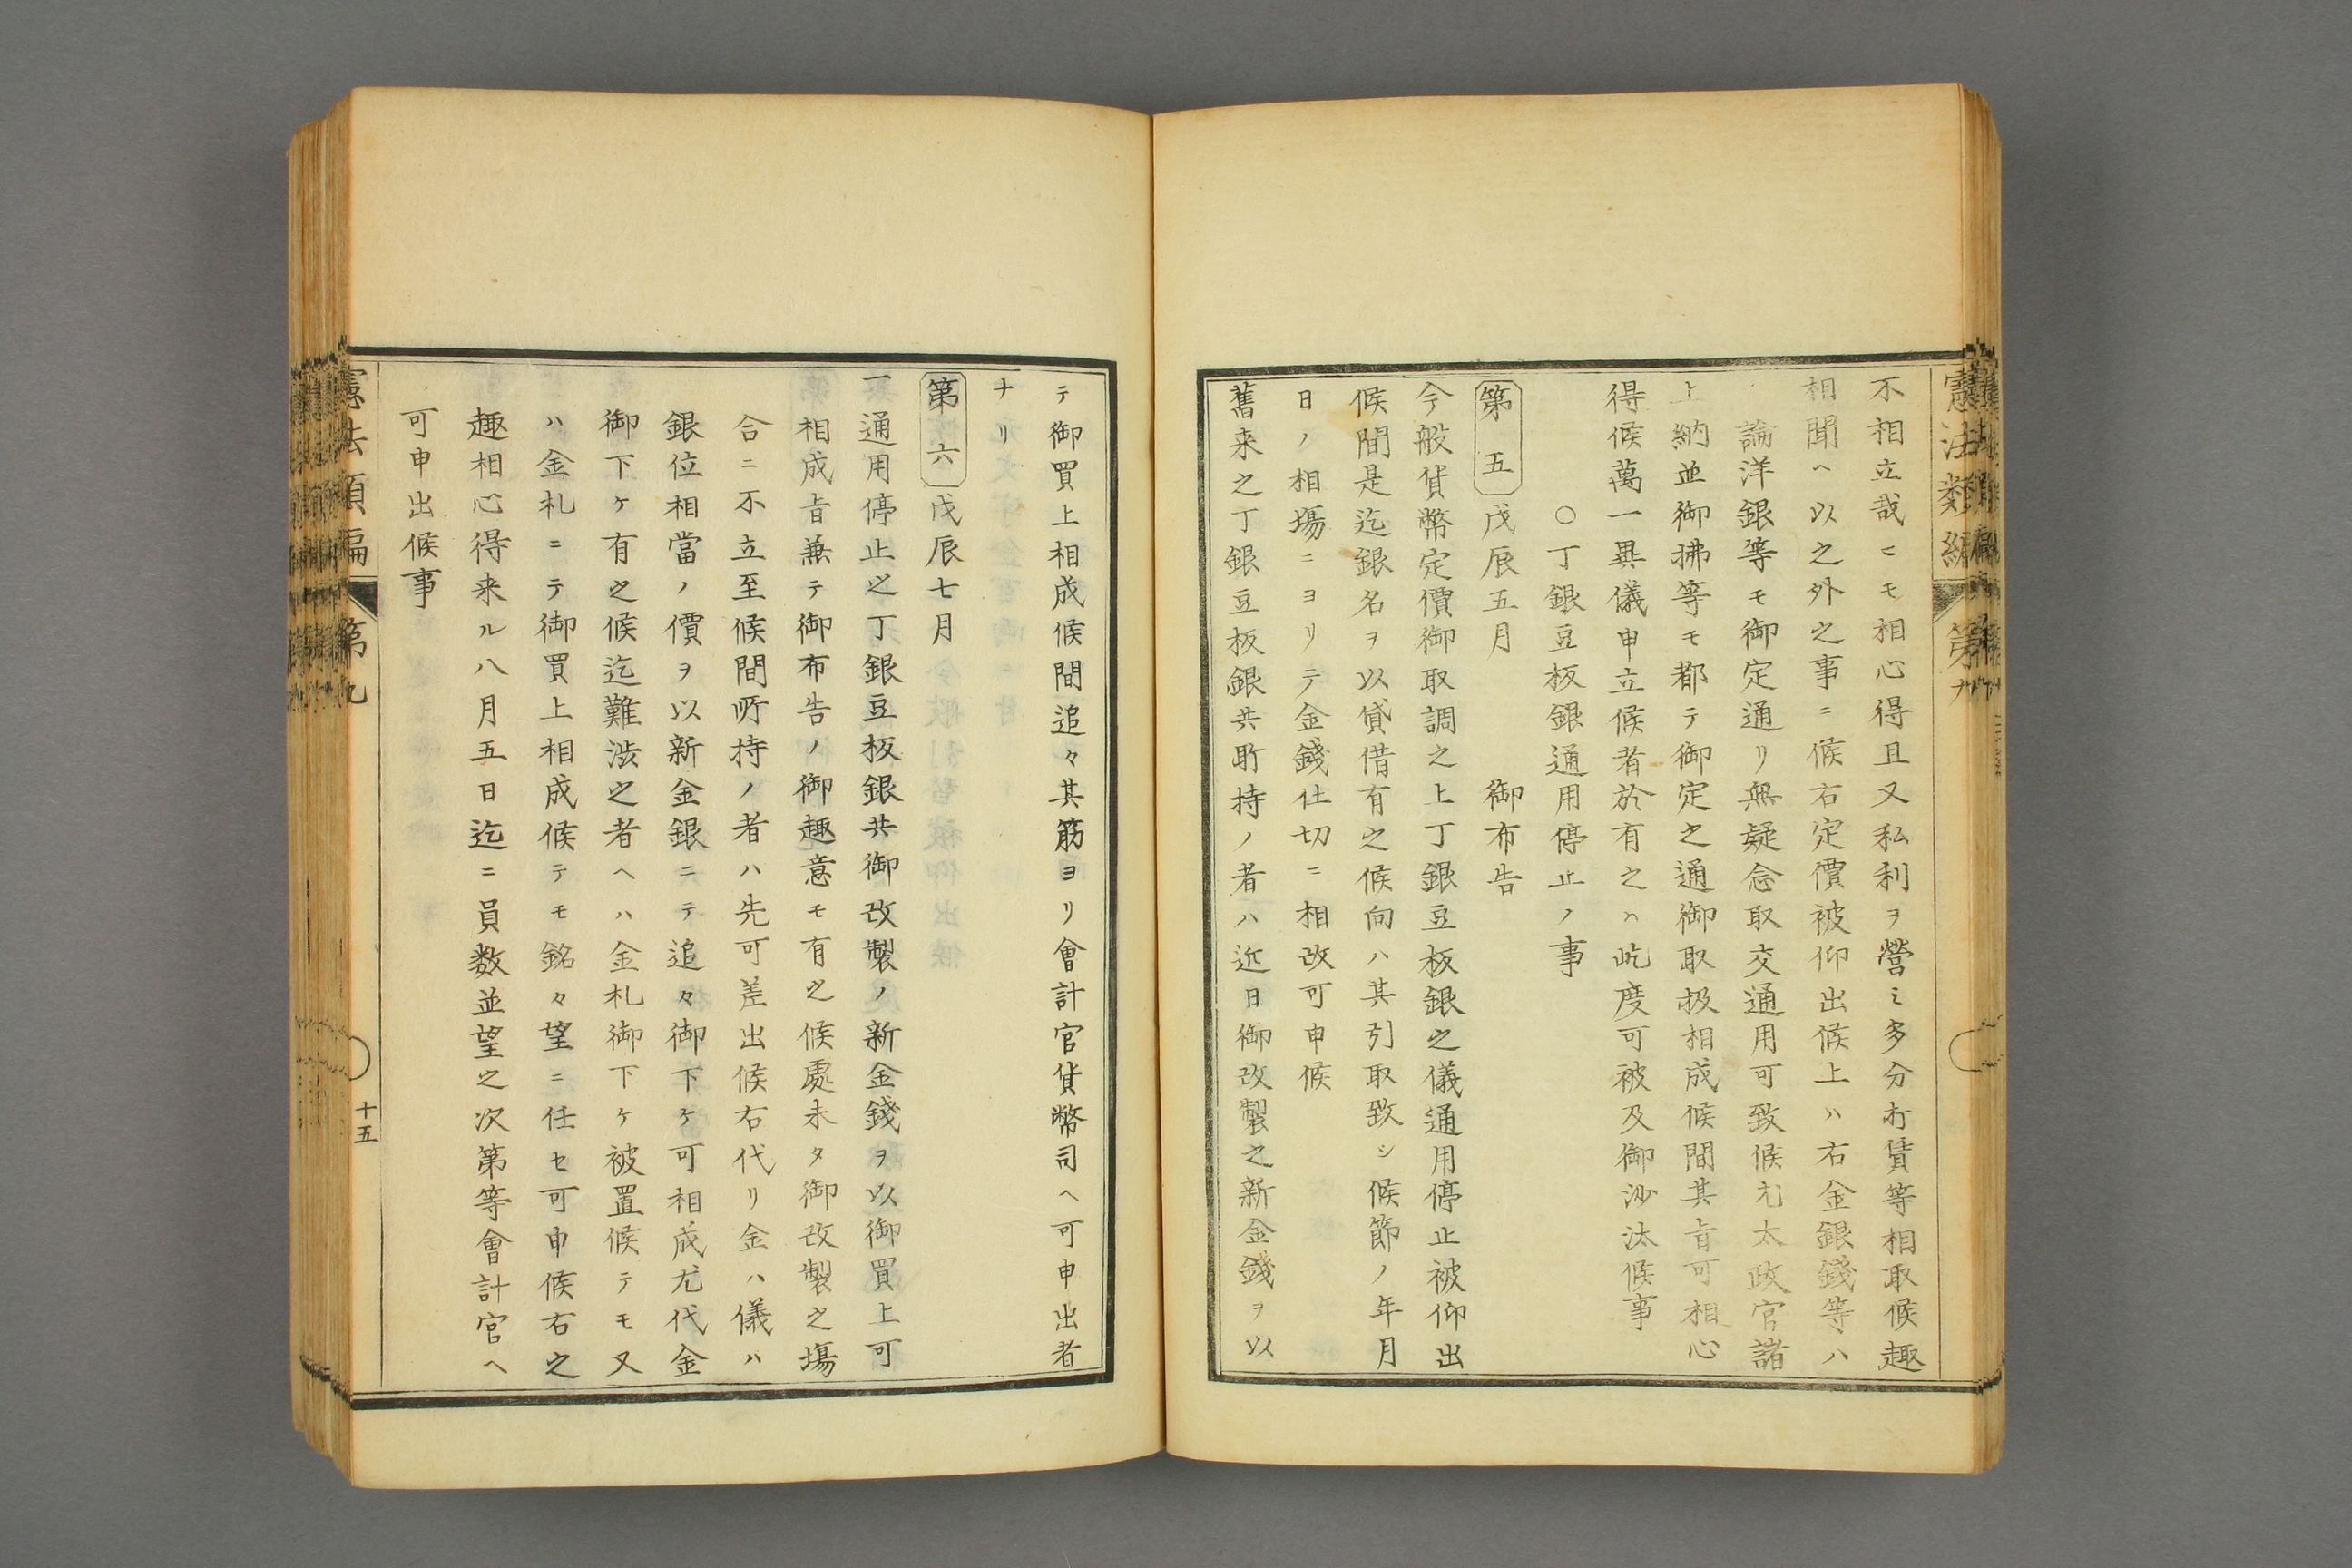 憲法類編
第九
不相立哉ニモ相心得且又私利ヲ營ミ多分打賃等相取候趣
相聞ヘ以之外之事ニ候右定價被仰出候上ハ右金銀錢等ハ
論洋銀等モ御定通リ無疑念取交通用可致候尤太政官諸
上納並御拂等モ都テ御定之通御取扱相成候間其旨可相心
得候萬一異儀申立候者於有之ハ屹度可被及御沙汰候事
○丁銀豆板銀通用停止ノ事
第五 戊辰五月 御布告
今般貨幣定價御取調之上丁銀豆板銀之儀通用停止被仰出
候間是迄銀名ヲ以貸借有之候向ハ其引取致シ候節ノ年月
日ノ相場ニヨリテ金錢仕切ニ相改可申候
舊来之丁銀豆板銀共所持ノ者ハ近日御改製之新金錢ヲ以
テ御買上相成候間追々其筋ヨリ會計官貨幣司ヘ可申出者
ナリ
第六 戊辰七月
一通用停止之丁銀豆板銀共御改製ノ新金錢ヲ以御買上可
相成旨兼テ御布告ノ御趣意モ有之候處未タ御改製之場
合ニ不立至候間所持ノ者ハ先可差出候右代リ金ハ儀ハ
銀位相當ノ價ヲ以新金銀ニテ追々御下ケ可相成尤代金
御下ケ有之候迄難澁之者ヘハ金札御下ケ被置候テモ又
ハ金札ニテ御買上相成候テモ銘々望ニ任セ可申候右之
趣相心得来ル八月五日迄ニ員数並望之次第等會計官ヘ
可申出候事
憲法類編
第九
十五